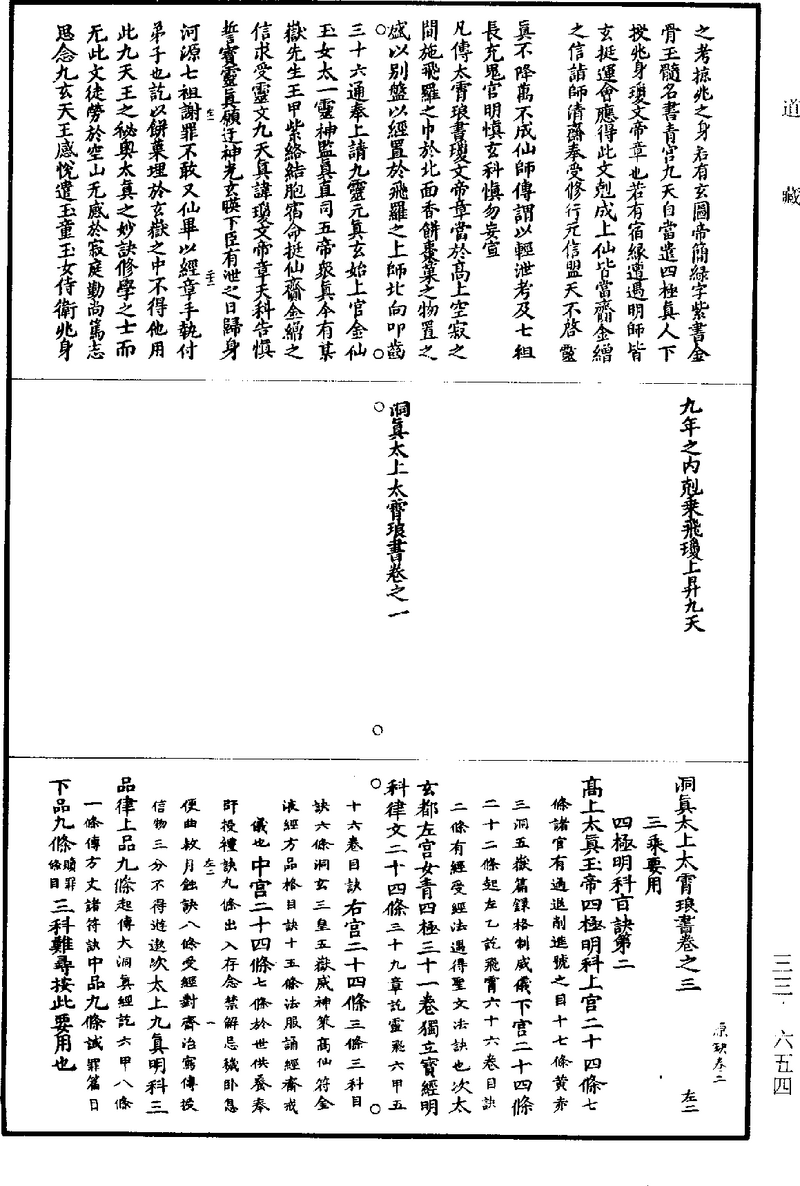 道藏
之考掠兆之身若有玄圖帝簡綠字紫書金
骨玉髓名書青宮九天自當遣四極真人下
授兆身瓊文帝章也若有宿緣遭遇明師皆
玄挺運會應得此文剋成上仙皆當齎金繒
之信詣師清齋奉受修行元信盟天不啓靈
真不降萬不成仙師傳謂以輕泄考及七祖
長充鬼官明慎玄科慎勿妄宣
凡傳太霄琅書瓊文帝章當於高上空寂之
間施飛羅之巾於北面香餅棗菓之物置之
盛以別盤以經置於飛羅之上師北向叩齒
三十六通奉上請九靈元真玄始上官金仙
玉女太一靈神監真直司五帝衆真今有某
嶽先生王甲紫絡結胞宿命挺仙齎金繒之
信求受靈文九天真諱瓊文帝章天科告慎
誓賓靈真願迂神光玄映下臣有泄之日歸身
河源七祖謝罪不敢又仙畢以經章手執付
弟子也訖以餅菓埋於玄嶽之中不得他用
此九天王之秘奧太真之妙訣修學之士而
无此文徒勞於空山无感於寂庭勤尚篤志
思念九玄天王感悅遣玉童玉女侍衛兆身
九年之內剋乘飛瓊上昇九天
洞真太上太霄琅書卷之一
洞真太上太霄琅書卷之三
原缺卷二
左二
三乘要用
四極明科百訣第二
高上太真玉帝四極明科上宮二十四條七
條諸官有過退削進號之目十七條黃赤
三洞五嶽篇籙格制威儀下宮二十四條
二十二條起左乙訖飛霄六十六卷目訣
二條有經受經法遇得聖文法訣也次太
玄都左宮女青四極三十一卷獨立寶經明
科律文二十四條三十九章訖靈飛六甲五
十六卷目訣右宮二十四條三條三科目
訣六條洞玄三皇五嶽威神策高仙符金
液經方品格目訣十五條法服誦經齋戒
儀也中宮二十四條七條於世供養奉
師授禮訣九條出入存念禁解忌穢臥息
便曲赦月蝕訣八條受經對齊治寫傳授
信物三分不得進遨次太上九真明科三
品律上品九條起傳大洞真經訖六甲八條
一條傳方丈諸符訣中品九條誡罪篇目
下品九條贖罪條目三科難尋按此要用也
三三·六五四